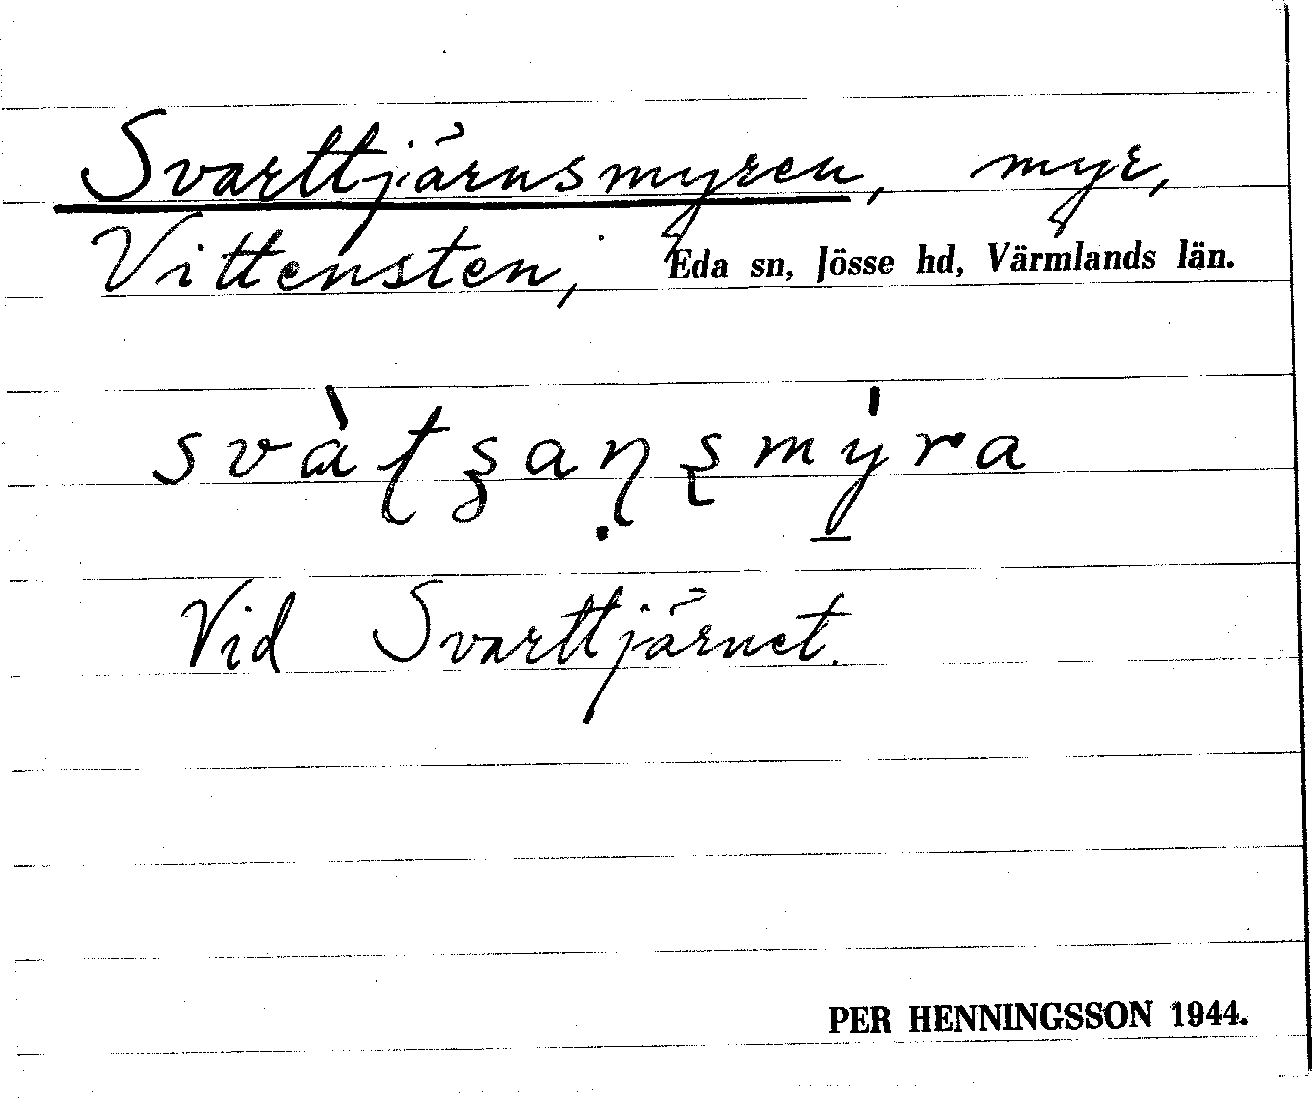 Svarttjärnsmyren, myr,
Vittensten, Eda sn, Jösse hd, Värmlands län.
svàʈʂaɳʂmýra
Vid Svarttjärnet.
PER HENNINGSSON 1944.